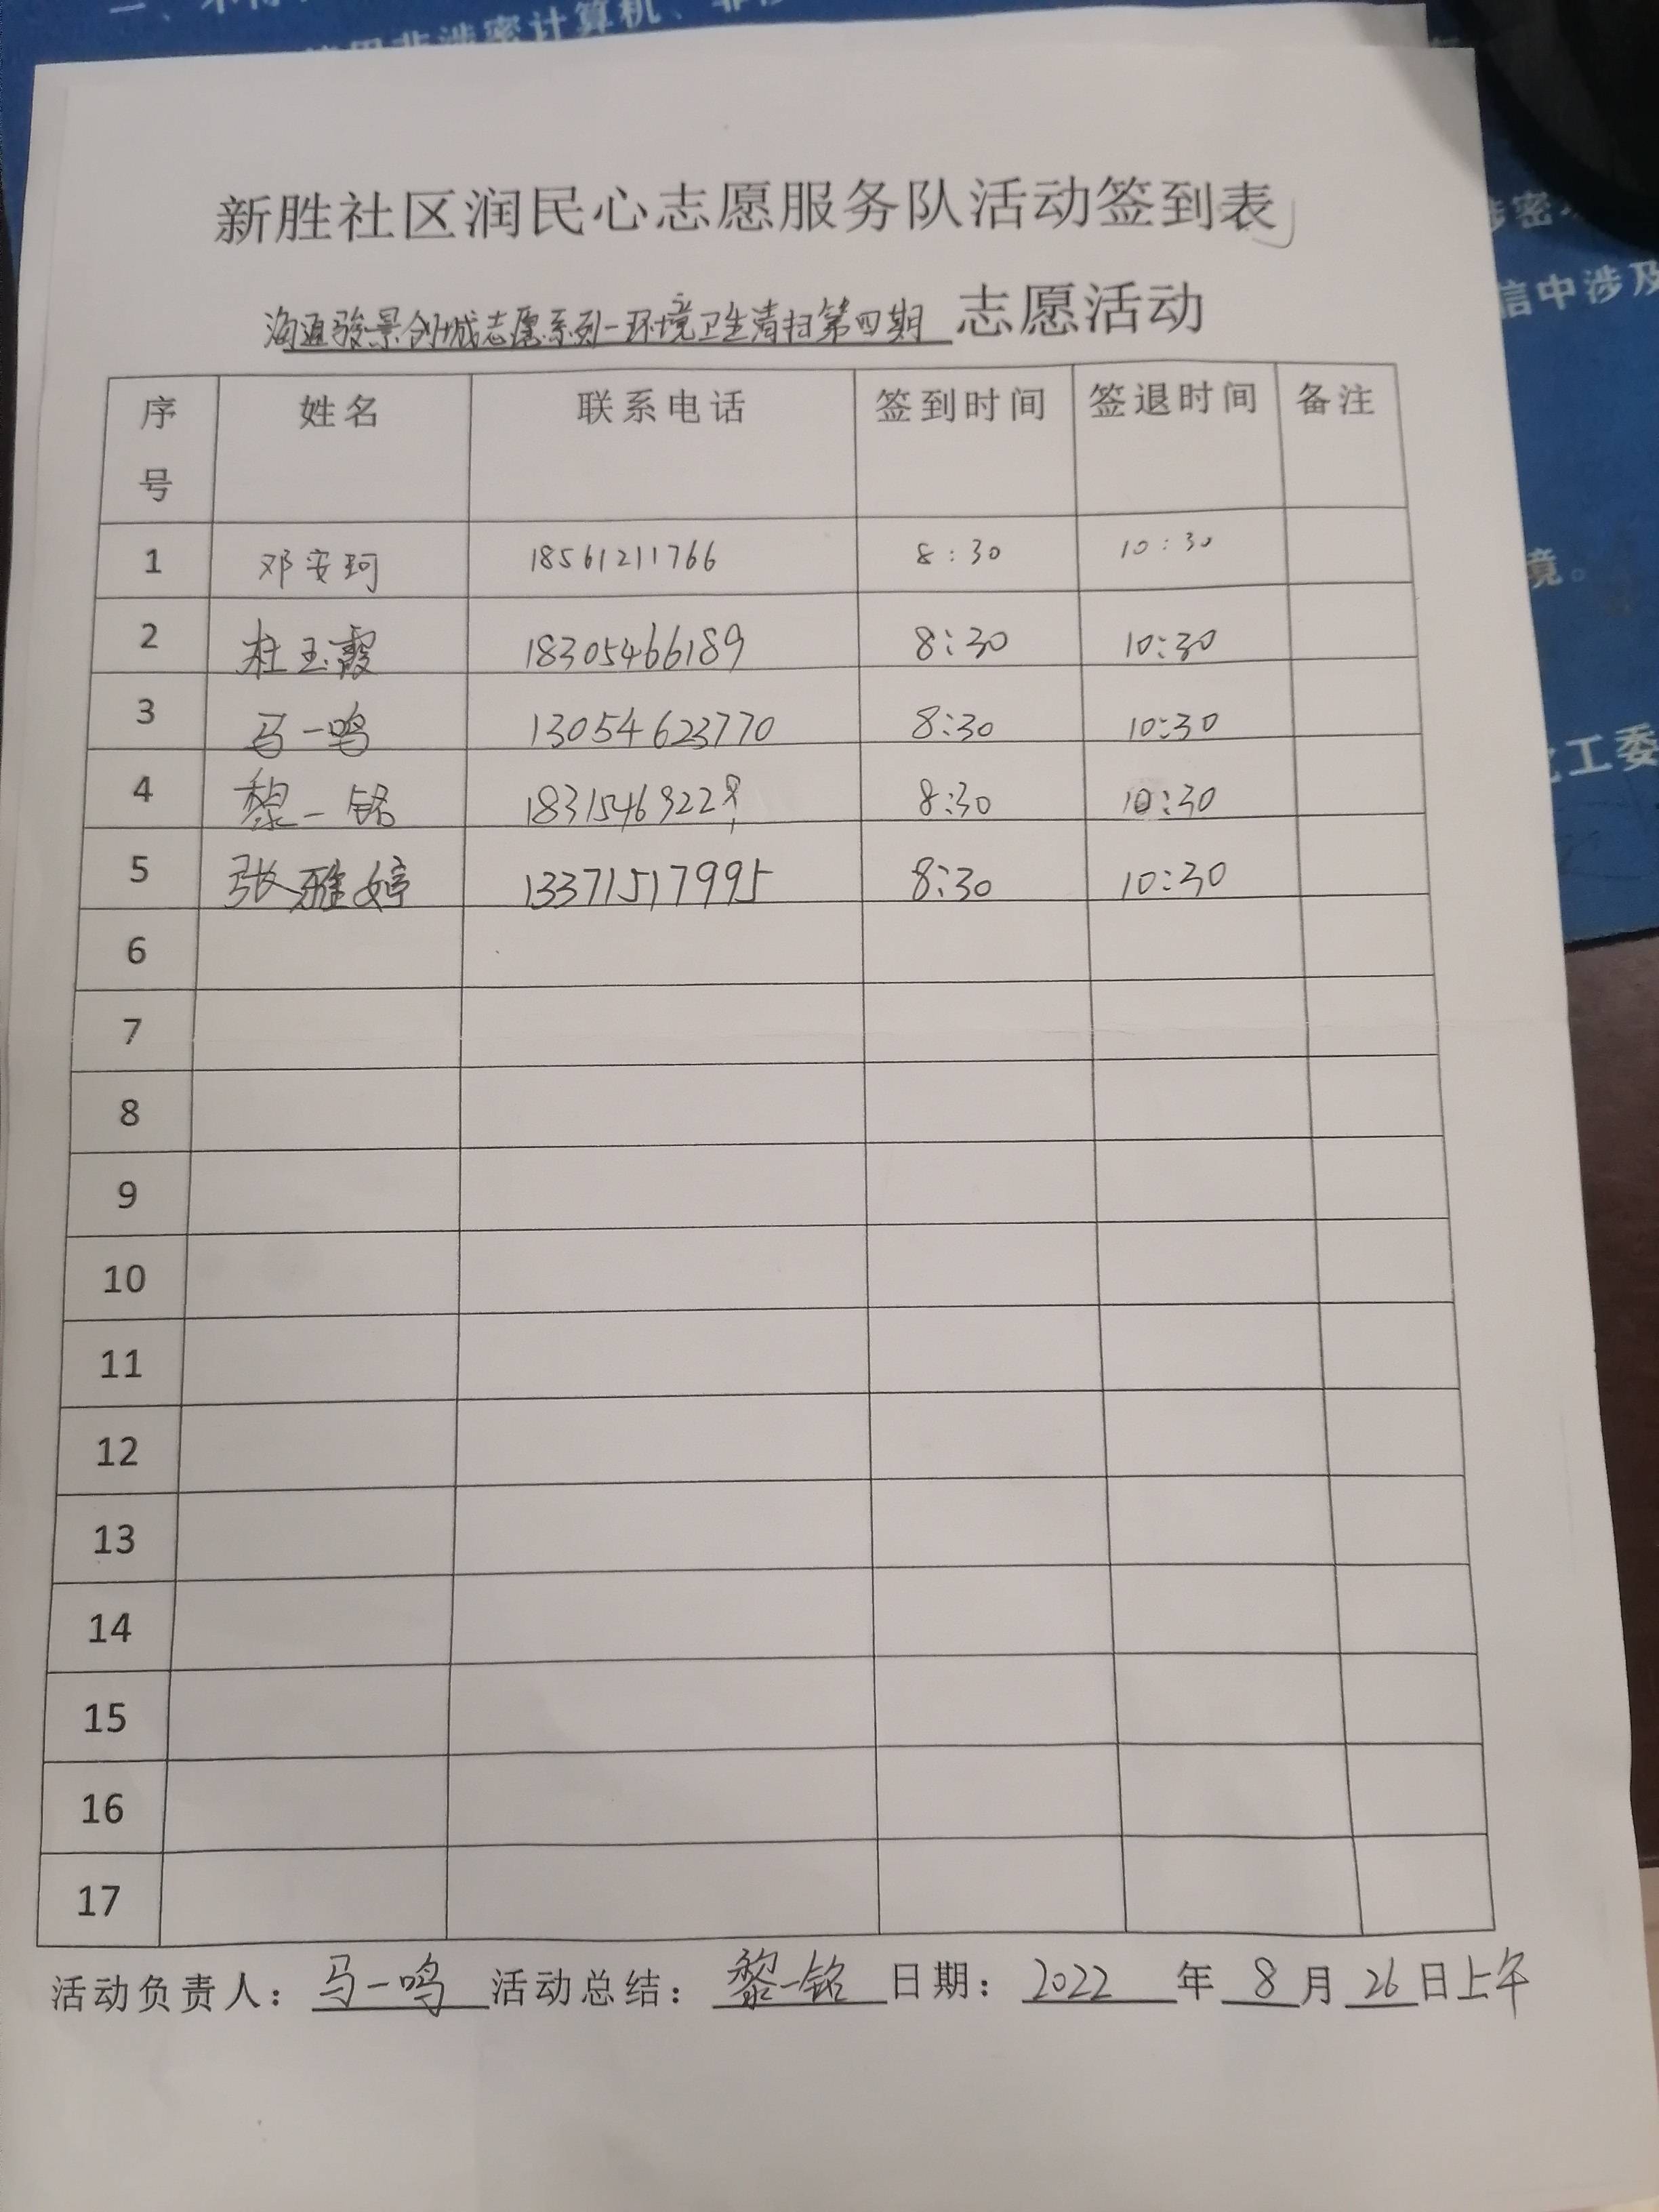 新胜社区润民心志愿服务队活动签到表
海通骏景创城志愿系列-环境卫生清扫第四期 志愿活动
序号 姓名 联系电话 签到时间 签退时间 备注
1 邓安珂 18561211766 8:30 10:30
2 杜玉霞 18305466189 8:30 10:30
3 马一鸣 13054623770 8:30 10:30
4 黎一铭 8:30 10:30
5 张雅婷 13371517995 8:30 10:30
6
7
8
9
10
11
12
13
14
15
16
17
活动负责人：马一鸣 活动总结：黎一铭 日期：2022 年 8 月 26 日上午
非涉密计算机、
涉密
信中涉及
境。
工委